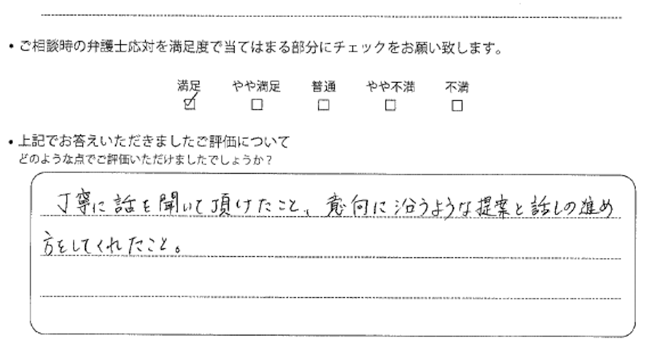 • ご相談時の弁護士応対を満足度で当てはまる部分にチェックをお願い致します。
満足 やや満足 普通 やや不満 不満
☑ □ □ □ □
• 上記でお答えいただきましたご評価について
どのような点でご評価いただけましたでしょうか？
丁寧に話を聞いて頂けたこと、意向に沿うような提案と話しの進め
方をしてくれたこと。